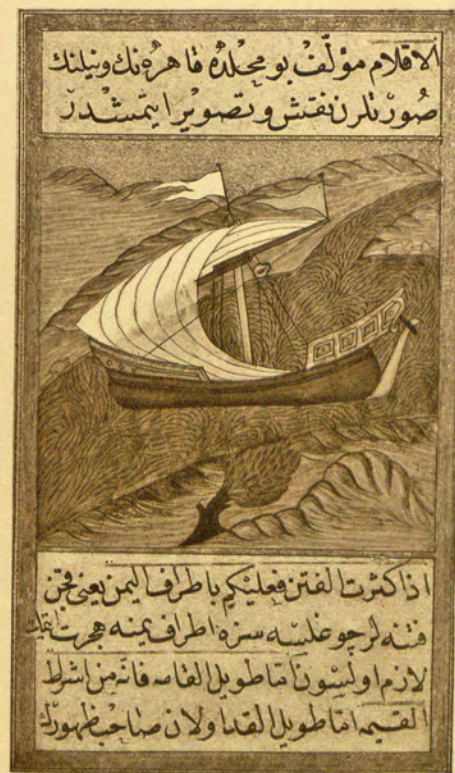 الاقلام مؤلّف بو محلده قاهره‌نك ونيلنك
صُورتلرن نقش وتصوير ايتمشدر
اذا كثرت الفتن فعليكم باطراف اليمن يعنى قچن
فتنه لر چوغلسه سزه اطراف يمنه هجرت
لازم اولسون امّا طويل القامه فانّه من اشراط
القيمه امّا طويل القد اولان صاحب ظهورك